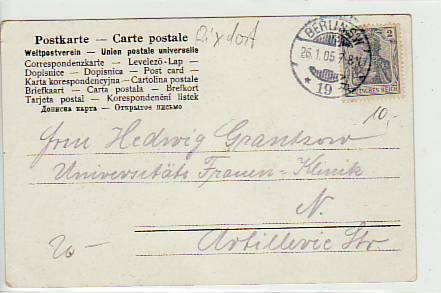 Postkarte — Carte postale
Weltpostverein — Union postale universelle
Correspondenzkarte — Levelezö-Lap —
Dopisnice — Dopisnica — Post card —
Karta korespondencyjna — Cartolina postale
Briefkaart — Carta postala — Brefkort
Tarjeta postal — Korespondenční lístek
Дописна карта — Открытое письмо
Rixdorf
BERLIN SW
26.1.05
* 19
2
DEUTSCHES REICH
10,-
Frau Hedwig Grantzow
Universitäts Frauen-Klinik
N.
20 —
Artillerie Str.